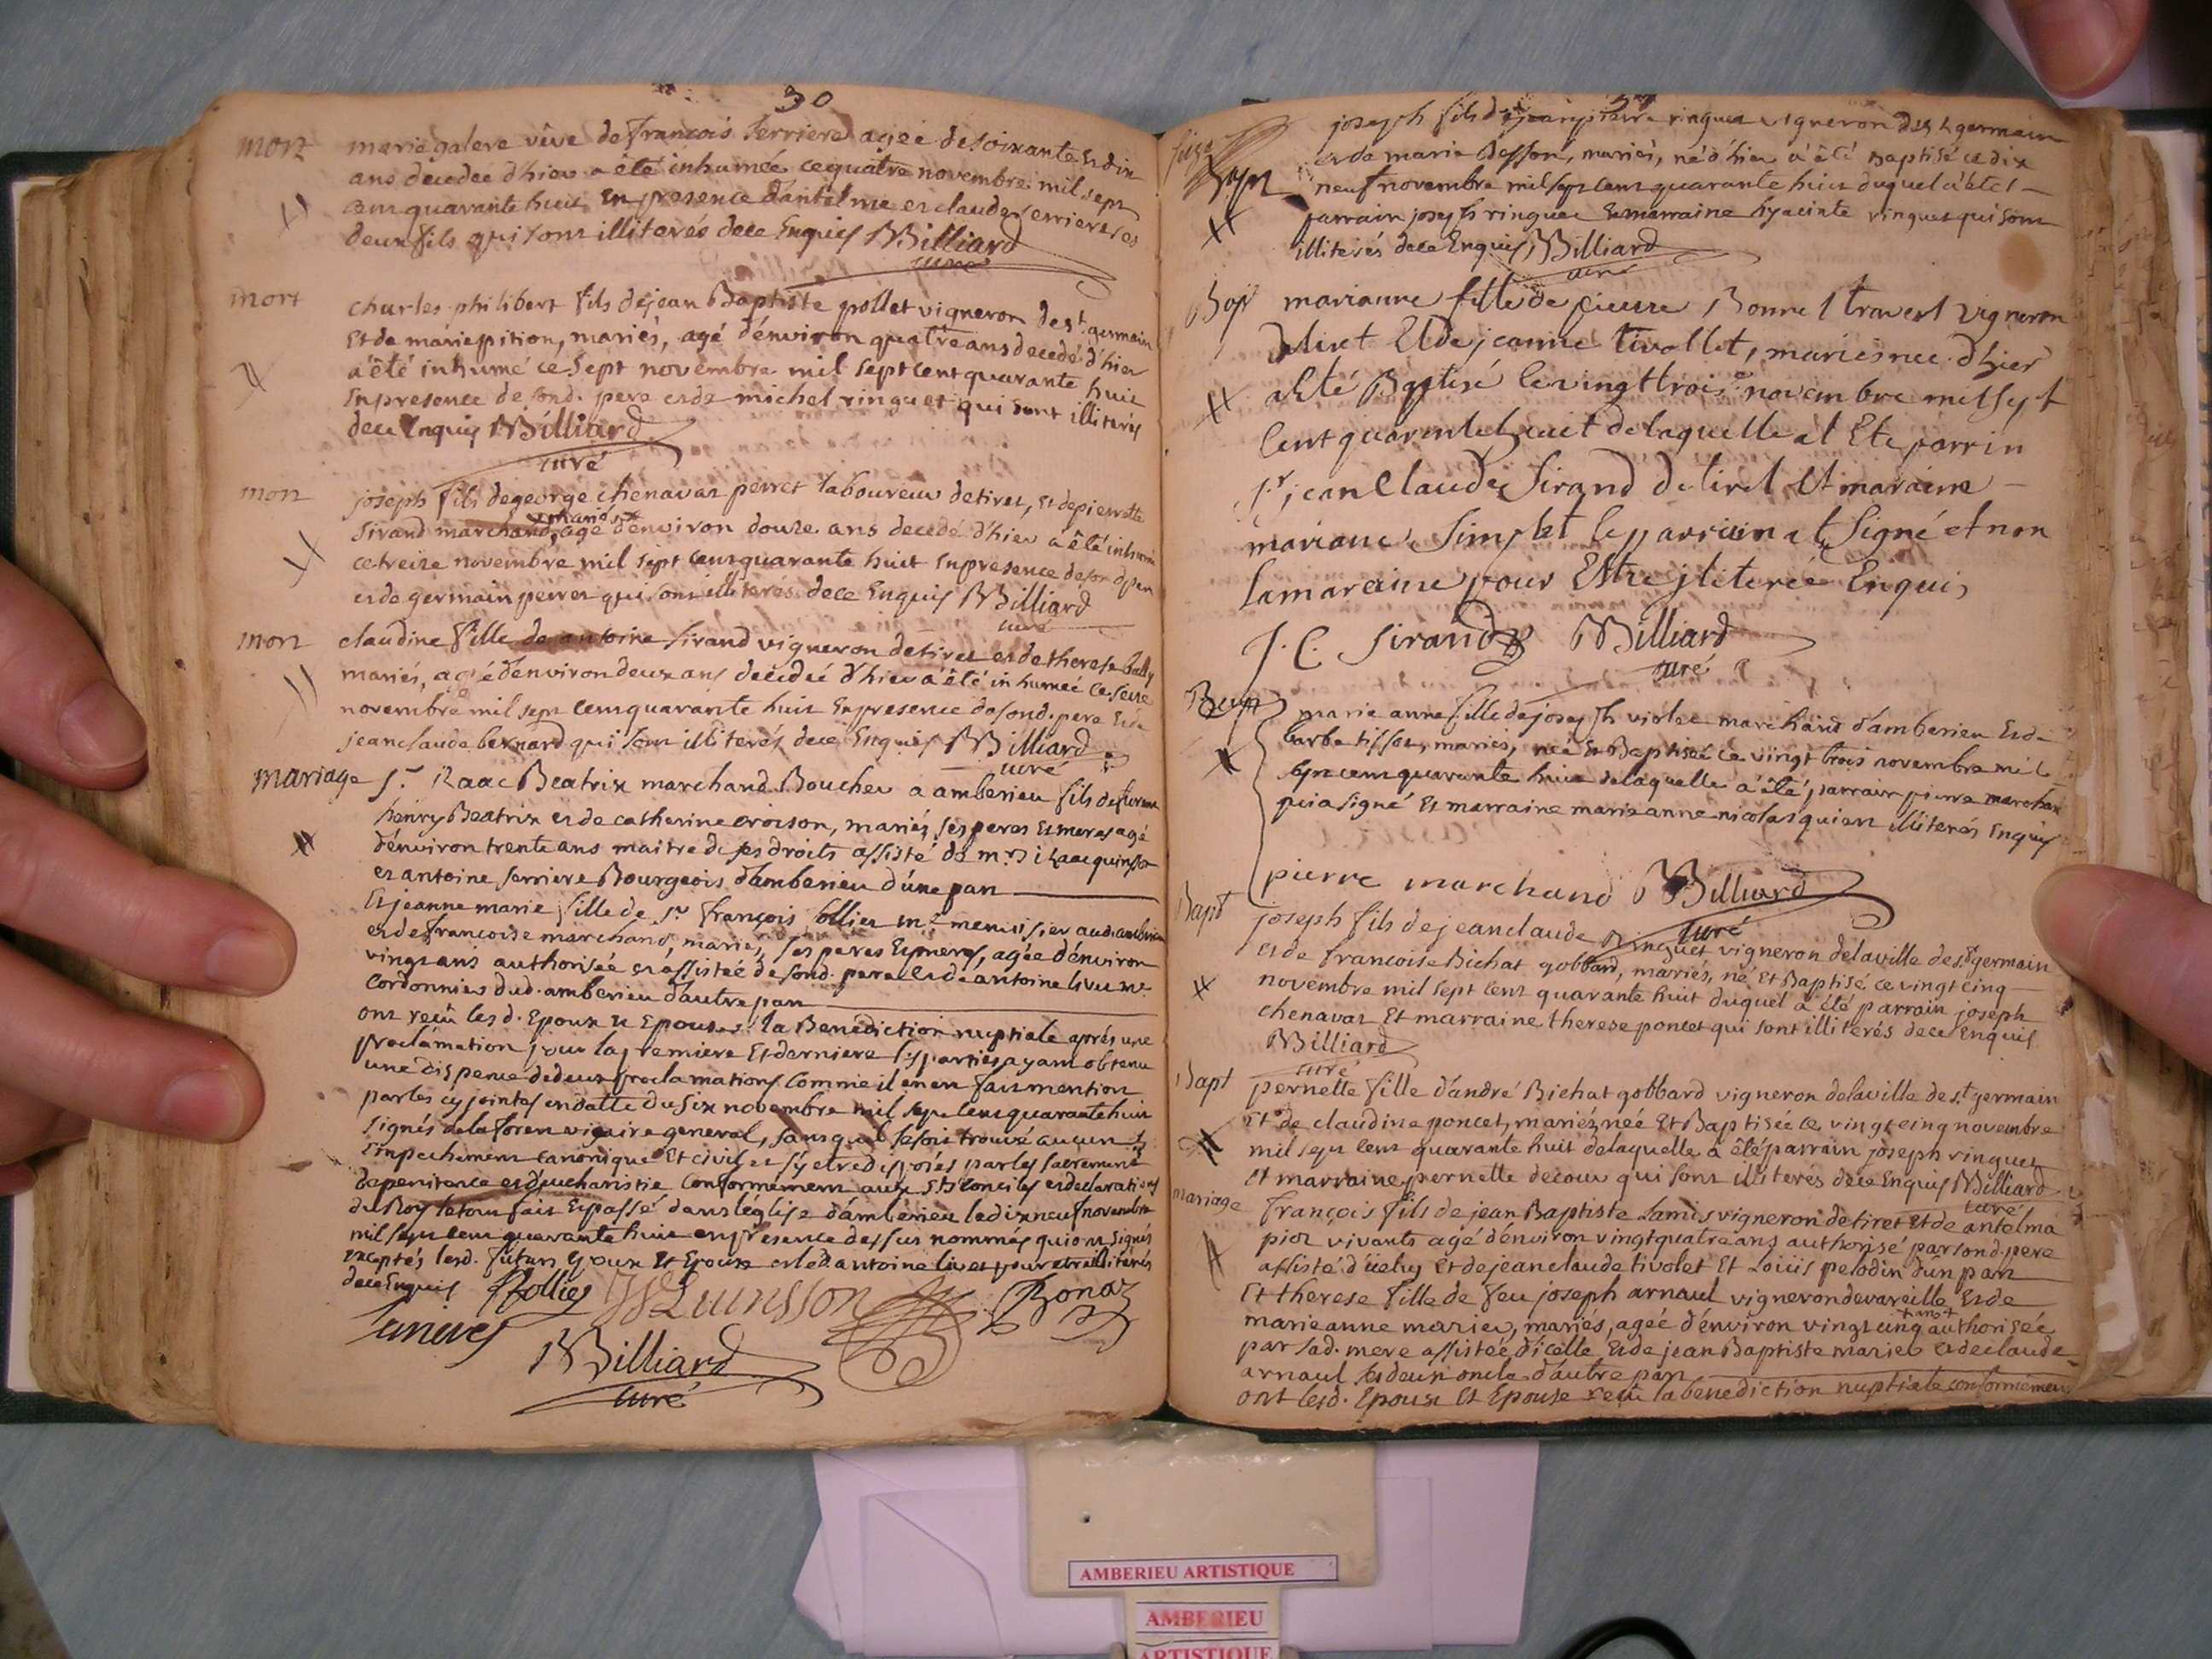 30
mort
marie galere vêve de françois serriere ageé de soixante et dix
ans decedee d'hier a été inhumeé ce quatre novembre mil sept
cent quarante huit En presence d'antelme et claude serriere ses
deux fils qui sont illiterés de ce Enquis Billiard
curé
mort
charles philibert fils de jean Baptiste pollet vigneron de st germain
Et de marie pition, mariés, agé d'environ quatre ans decedé d'hier
a été inhumé ce sept novembre mil sept cent quarante huit
En presence de sond. pere et de michel ringuet qui sont illiterés
de ce Enquis Billiard
curé
mort
joseph fils de george chenavaz perret laboureur de tiret, Et de pierrette
sirand mariés agé d'environ douze ans decedé d'hier a été inhumé
ce treize novembre mil sept cent quarante huit En presence de son d. pere
et de germain perret qui sont illiterés de ce Enquis Billiard
curé
mort
claudine fille de antoine sirand vigneron de tiret et de therese bally
mariés, ageé d'environ deux ans decedeé d'hier a été inhumeé ce seize
novembre mil sept cent quarante huit En presence de sond. pere Et de
jean claude bernard qui sont illiterés de ce Enquis Billiard
curé
mariage
Sr. Isaac Beatrix marchand Boucher a amberieu fils de
henry Beatrix et de catherine croison, mariés ses peres Et meres agé
d'environ trente ans maitre de ses droits assisté de mr isaac quinsson
et antoine serriere Bourgeois d'amberieu d'une part
Et jeanne marie fille de sr françois follier me menuisier aud. amberieu
et de francoise marchand, mariés, ses peres Et meres, agée d'environ
vingt ans authorisée et assisteé de sond. pere Et de antoine livet me.
cordonnier dud. amberieu d'autre part
ont reçû les d. Epoux et Epouse la Benediction nuptiale aprés une
proclamation pour la premiere Et derniere les parties ayant obtenu
une dispence de deux proclamations comme il en est fait mention
par les cy jointes en datte du six novembre mil sept cent quarante huit
signés de la foren vicaire general, sans quil se soit trouvé aucun
Empechement canonique Et civil et s'y etre disposés par les sacrements
de penitence et d'eucharistie conformement aux Sts conciles et declarations
du Roy le tout fait Et passé dans l'église d'amberieu le dix neuf novembre
mil sept cent quarante huit en presence des sus nommés qui ont signés
exceptés lesd. futurs Epoux Et Epouse et led antoine livet pour etre illiterés
de ce Enquis follier Quinsson Bonaz
Billiard
curé
Bapt
joseph fils de jean pierre ringuet vigneron de st germain
et de marie Besson, mariés, né d'hier a été Baptisé ce dix
neuf novembre mil sept cent quarante huit duquel a été
parrain joseph ringuet Et marraine hyacinte ringuet qui sont
illiterés de ce Enquis Billiard
curé
Bapt
marianne fille de pierre Bonnet travert vigneron
detiret Et de jeanne tivollet, mariés nee d'hier
a Eté Baptisé le vingt trois.e novembre mil sept
Cent quarente huit de laquelle at Ete parrin
Sr. jean Claude Sirand de tiret Et maraine
mariane Simplet le parrain at Signé et non
la maraine pour Estre jliterée Enquis
J. C. Sirand Billiard
curé
Bapt
marie anne fille de joseph violet marchand d'amberieu Et de
barbe tissot, mariés, neé Et Baptiseé ce vingt trois novembre mil
sept cent quarante huit de laquelle a été parrain pierre marchand
qui a signé Et marraine marie anne nicolas qui est illiterés Enquis
pierre marchand Billiard
curé
Bapt
joseph fils de jean claude Ringuet vigneron de la ville de st germain
et de francoise Bichat gobbard, mariés, né Et Baptisé ce vingt cinq
novembre mil sept cent quarante huit duquel a été parrain joseph
chenavaz Et marraine therese poncet qui sont illiterés de ce Enquis
Billiard
curé
Bapt
pernette fille d'andré Bichat gobbard vigneron de la ville de st germain
Et de claudine poncet, mariéz, neé Et Baptisée ce vingt cinq novembre
mil sept cent quarante huit de laquelle a été parrain joseph ringuet
Et marraine pernette decoux qui sont illiterés de ce Enquis Billiard
curé
mariage
François fils de jean Baptiste Lamis vigneron de tiret Et de antelma
pioz vivants agé d'environ vingt quatre ans authorisé par sond. pere
assisté d'icelui Et de jean claude tivolet Et Loüis pelodin d'un part
Et therese fille de feu joseph arnaul vigneron de vareille Et de
marie anne marier, mariés, ageé d'environ vingt cinq ans authorisée
par sad. mere assistée d'icelle Et de jean Baptiste marier et de claude
arnaul ses deux oncle d'autre part
ont lesd. Epoux Et Epouse reçû la benediction nuptiale conformement
AMBERIEU ARTISTIQUE
AMBERIEU
ARTISTIQUE